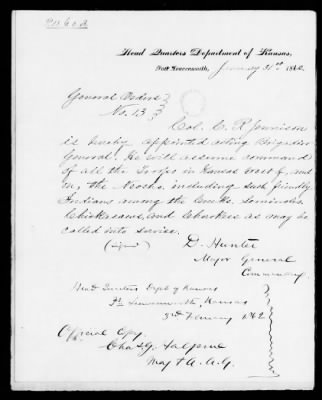 Head Quarters Department of Kansas,
Fort Leavenworth, January 31st 1862
General Orders
No. 13
Col. C. R. Jennison
is hereby appointed acting Brigadier
General. He will assume command
of all the troops in Kansas West of, and
on, the Neosho, including such friendly
Indians among the Creeks, Seminoles
Chickasaws, and Cherokees as may be
called into service.
(signed) D. Hunter
Major General
Commanding
Head Quarters Dept of Kansas
Ft Leavenworth, Kansas
3rd February 1862
Official Copy
Chas. G. Halpine
Maj & A. A. G.